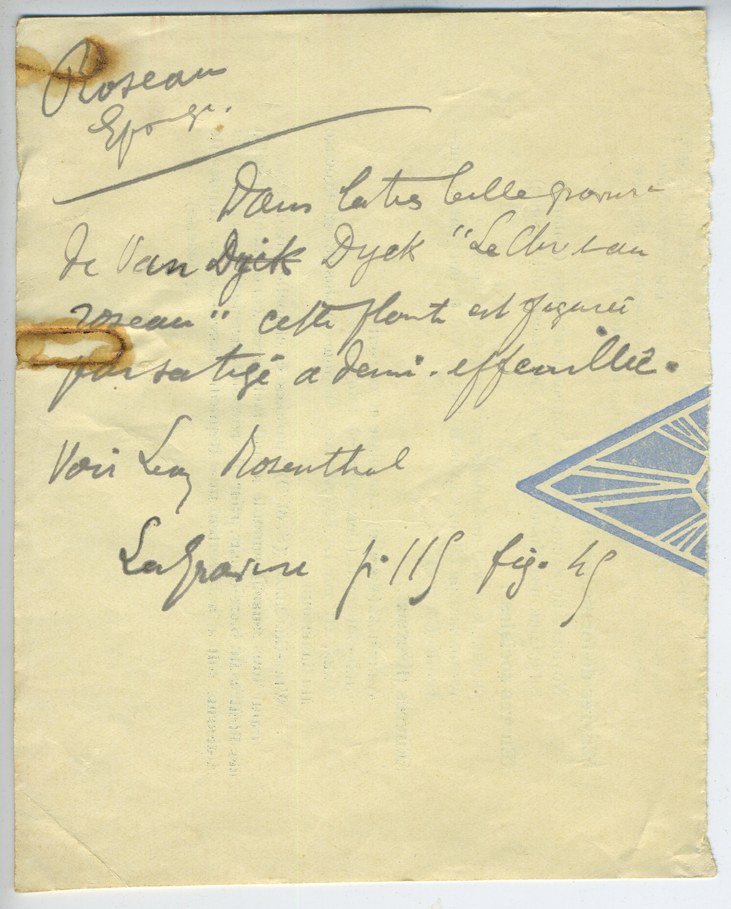 Roseau
Eponge.
Dans la très belle gravure
de Van Dyck Dyck "Le Christ au
roseau" cette plante est figurée
par sa tige a demi-effeuillée.
Voir Leon Rosenthal
La Gravure p. 115 fig. 45